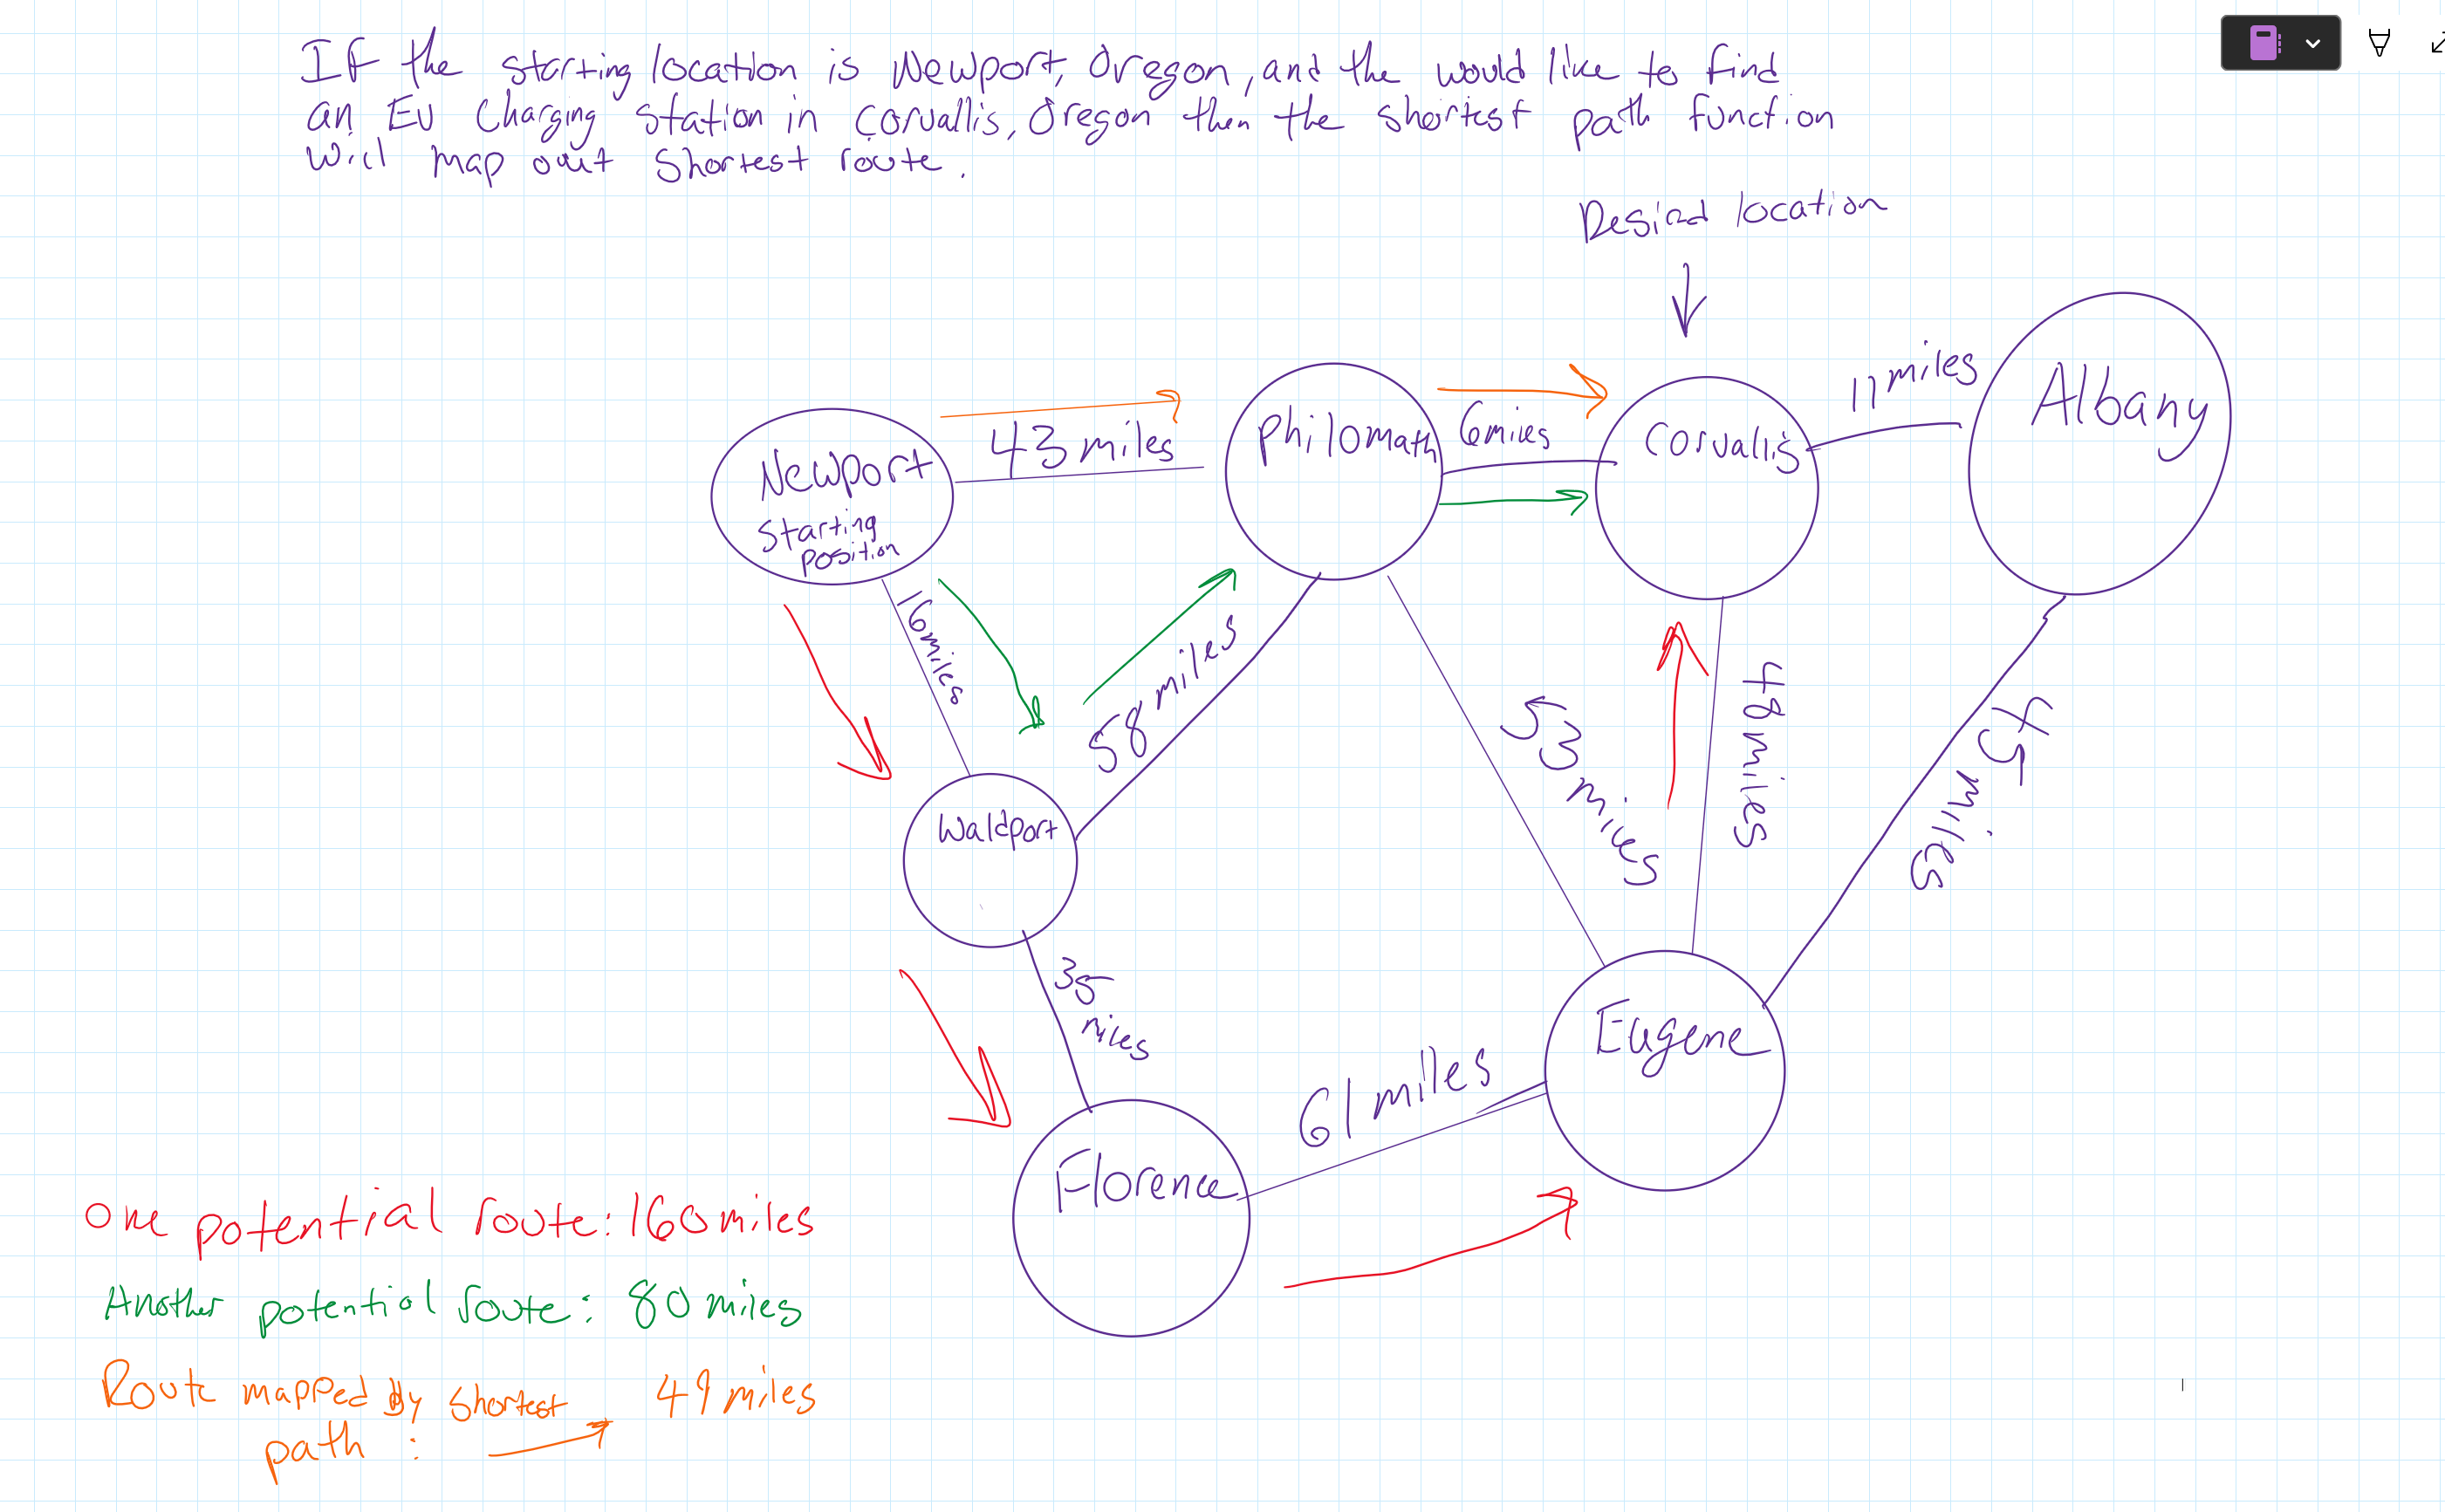 If the starting location is Newport, Oregon, and the would like to find
an EV Charging Station in Corvallis, Oregon then the shortest path function
will map out shortest route.
Desired location
Newport
starting
position
43 miles
Philomath
6 miles
Corvallis
11 miles
Albany
16 miles
58 miles
53 miles
48 miles
45 miles
Waldport
35
miles
Florence
61 miles
Eugene
One potential route: 160 miles
Another potential route: 80 miles
Route mapped by shortest 49 miles
path :